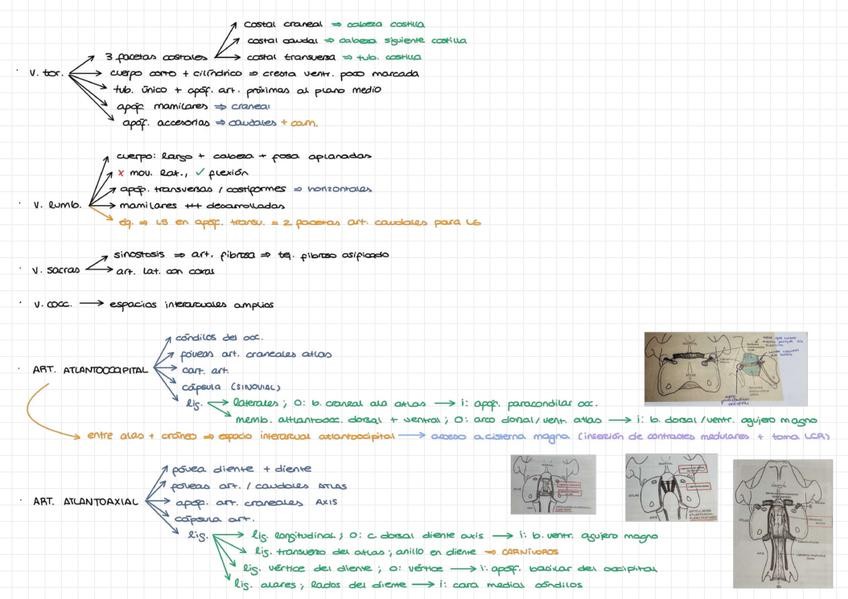 costal craneal ⇒ cabeza costilla
costal caudal ⇒ cabeza siguiente costilla
3 facetas costales → costal transversa ⇒ tub. costilla
· V. tor. → cuerpo corto + cilíndrico ⇒ cresta ventr. poco marcada
tub. único + apóf. art. próximas al plano medio
apóf. mamilares ⇒ craneal
apóf. accesorias ⇒ caudales + carn.
cuerpo: largo + cabeza + fosa aplanadas
x mov. lat., ✓ flexión
apóf. transversas / costiformes ⇒ horizontales
· V. lumb. → mamilares +++ desarrolladas
éq. ⇒ L5 en apóf. transv. = 2 facetas art. caudales para L6
sinostosis ⇒ art. fibrosa ⇒ tej. fibroso osificado
· V. sacras → art. lat. con coxas
· V. cocc. → espacios interarcuales amplios
cóndilos del occ.
fóveas art. craneales atlas
· ART. ATLANTOOCCIPITAL → cart. art.
cápsula (SINOVIAL)
lig. → laterales; O: b. craneal ala atlas → i: apóf. paracondilar occ.
memb. atlantoocc. dorsal + ventral; O: arco dorsal/ventr. atlas → i: b. dorsal/ventr. agujero magno
entre alas + cráneo ⇒ espacio interarcual atlantooccipital → acceso a cisterna magna (inserción de contrastes medulares + toma LCR)
fóvea diente + diente
fóveas art. / caudales ATLAS
· ART. ATLANTOAXIAL → apóf. art. craneales AXIS
cápsula art.
lig. → lig. longitudinal; O: c. dorsal diente axis → i: b. ventr. agujero magno
lig. transverso del atlas; anillo en diente ⇒ CARNÍVOROS
lig. vértice del diente; O: vértice → i: apóf. basilar del occipital
lig. alares; lados del diente → i: cara medial cóndilos